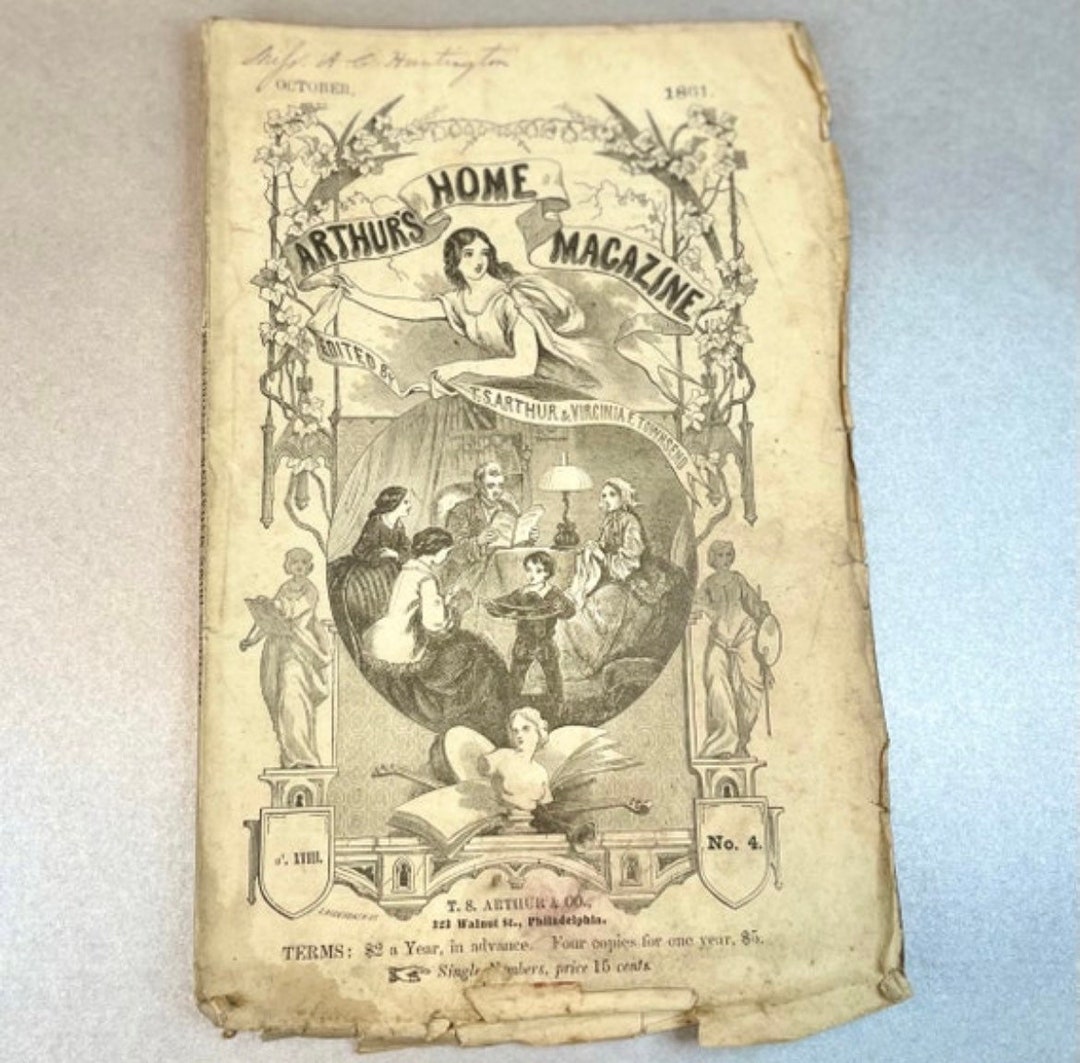 Miss A C Huntington
OCTOBER, 1861.
ARTHUR'S HOME MAGAZINE
EDITED BY
T. S. ARTHUR & VIRGINIA F. TOWNSEND
XVIII.
No. 4.
T. S. ARTHUR & CO.,
323 Walnut St., Philadelphia.
TERMS: $2 a Year, in advance. Four copies for one year, $5.
Single Numbers, price 15 cents.